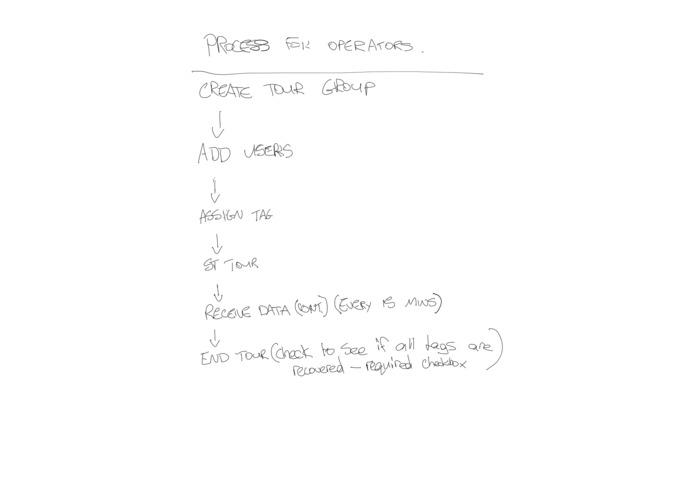 PROCESS FOR OPERATORS.
CREATE TOUR GROUP
ADD USERS
ASSIGN TAG
ST TOUR
RECEIVE DATA (CONT) (EVERY 15 MINS)
END TOUR (check to see if all tags are
recovered - required checkbox)